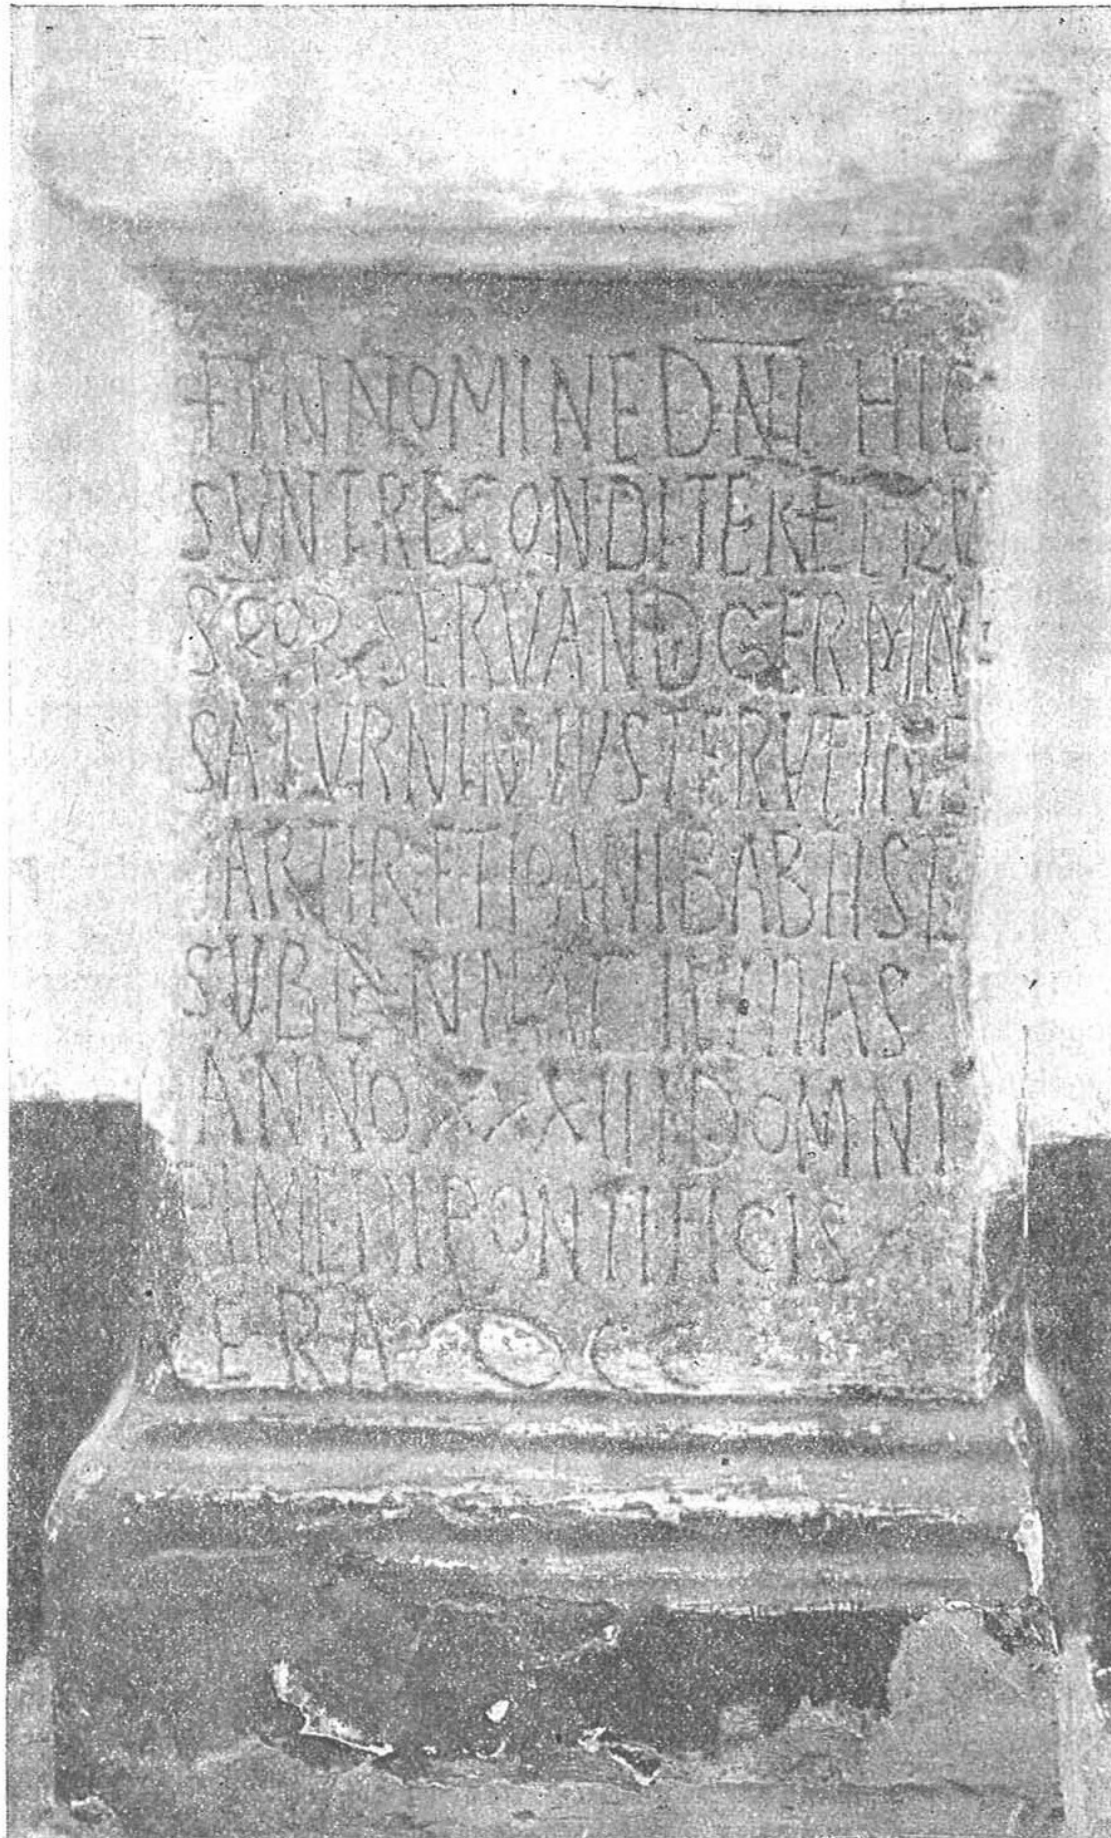 + IN NOMINE DNI HIC
SUNT RECONDITE RELIQU
SCOR SERVAND GERMN
SATURNIN IUST RUFIN
ARTIR ET IOANI BABTISTE
SUB
ANNO XXXIII DOMNI
PIMENI PONTIFICIS
ERA DCC